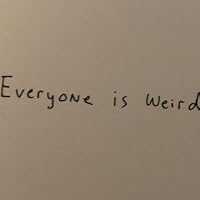 Everyone is Weird